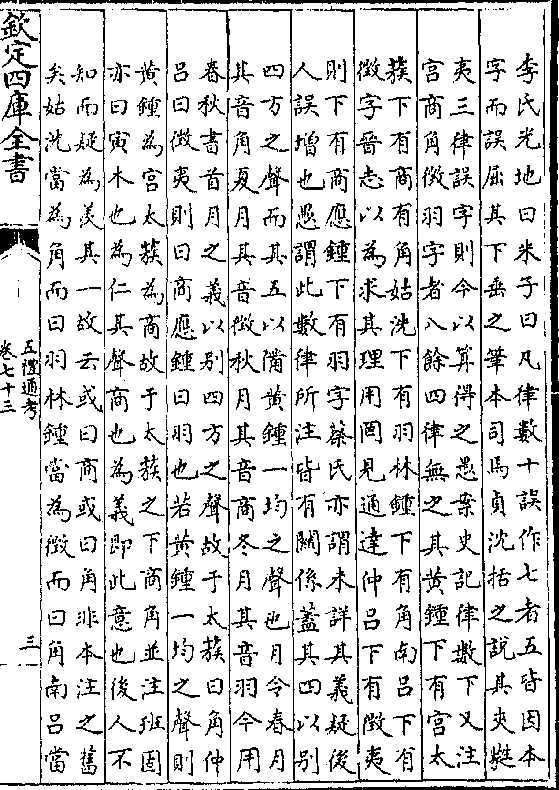 李氏光地曰朱子曰凡律數十誤作七者五皆因本
字而誤屈其下垂之筆本司馬貞沈括之說其夾鍾
夷三律誤字則今以算得之愚案史記律數下又注
宮商角徵羽字者八餘四律無之其黃鍾下有宮太
蔟下有商有角姑洗下有羽林鍾下有角南呂下有
徵字晉志以為求其理用罔見通達仲呂下有徵夷
則下有商應鍾下有羽字蔡氏亦謂未詳其義疑後
人誤增也愚謂此數律所注皆有關係蓋其四以别
四方之聲而其五以備黃鍾一均之聲也月令春月
其音角夏月其音徵秋月其音商冬月其音羽今用
春秋書首月之義以别四方之聲故于太蔟曰角仲
呂曰徵夷則曰商應鍾曰羽也若黃鍾一均之聲則
黃鍾為宮太蔟為商故于太蔟之下商角並注班固
亦曰寅木也為仁其聲商也為義即此意也後人不
知而疑為羨其一故云或曰商或曰角非本注之舊
矣姑洗當為角而曰羽林鍾當為徵而曰角南呂當
欽定四庫全書
五禮通考
卷七十三
三